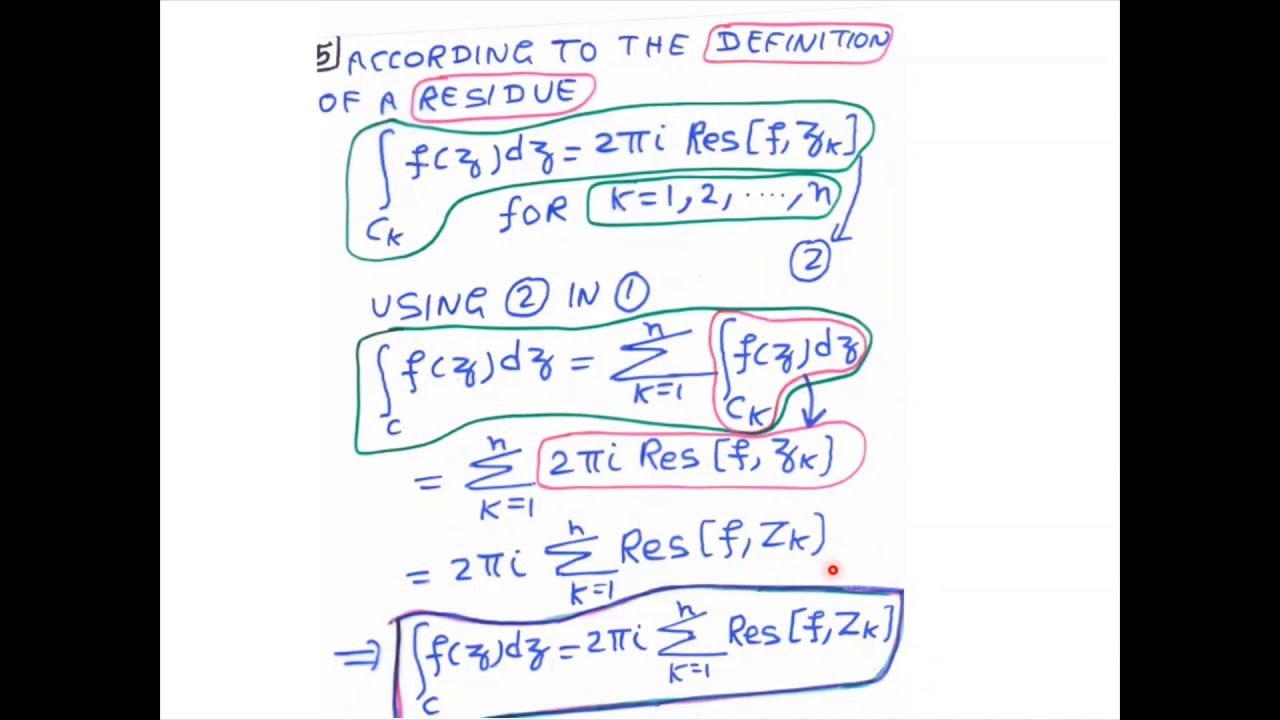 5] ACCORDING TO THE DEFINITION
OF A RESIDUE
∫_{C_K} f(z)dz = 2πi Res[f, z_K]
FOR K=1, 2, ....., n
②
USING ② IN ①
∫_C f(z)dz = ∑_{K=1}^{n} ∫_{C_K} f(z)dz
= ∑_{K=1}^{n} 2πi Res[f, z_K]
= 2πi ∑_{K=1}^{n} Res[f, Z_K]
⇒ ∫_C f(z)dz = 2πi ∑_{K=1}^{n} Res[f, Z_K]